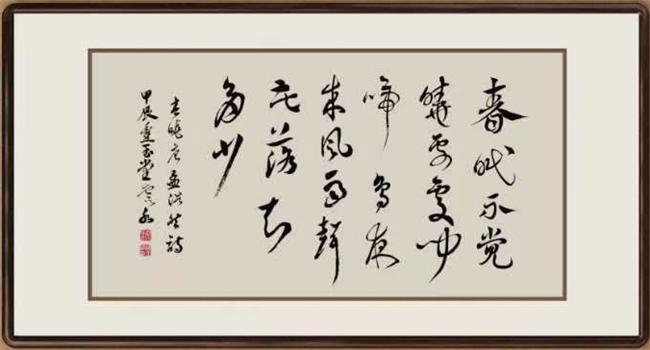 春眠不觉
晓处处闻
啼鸟夜
来风雨声
花落知
多少
春晓唐孟浩然诗
甲辰堂